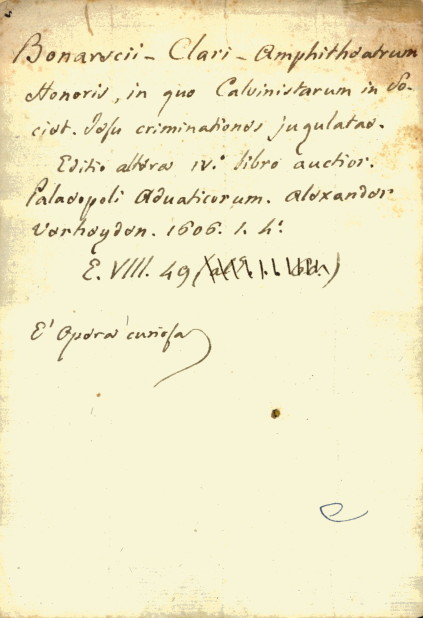 Bonarscii - Clari - Amphitheatrum
Honoris, in quo Calvinistarum in So-
ciet. Jesu criminationes jugulatae.
Editio altera IV.º libro auctior.
Palaeopoli Aduaticorum. Alexander
Verheyden. 1606. 1. 4º.
E. VIII. 49
E' Opera curiosa
e